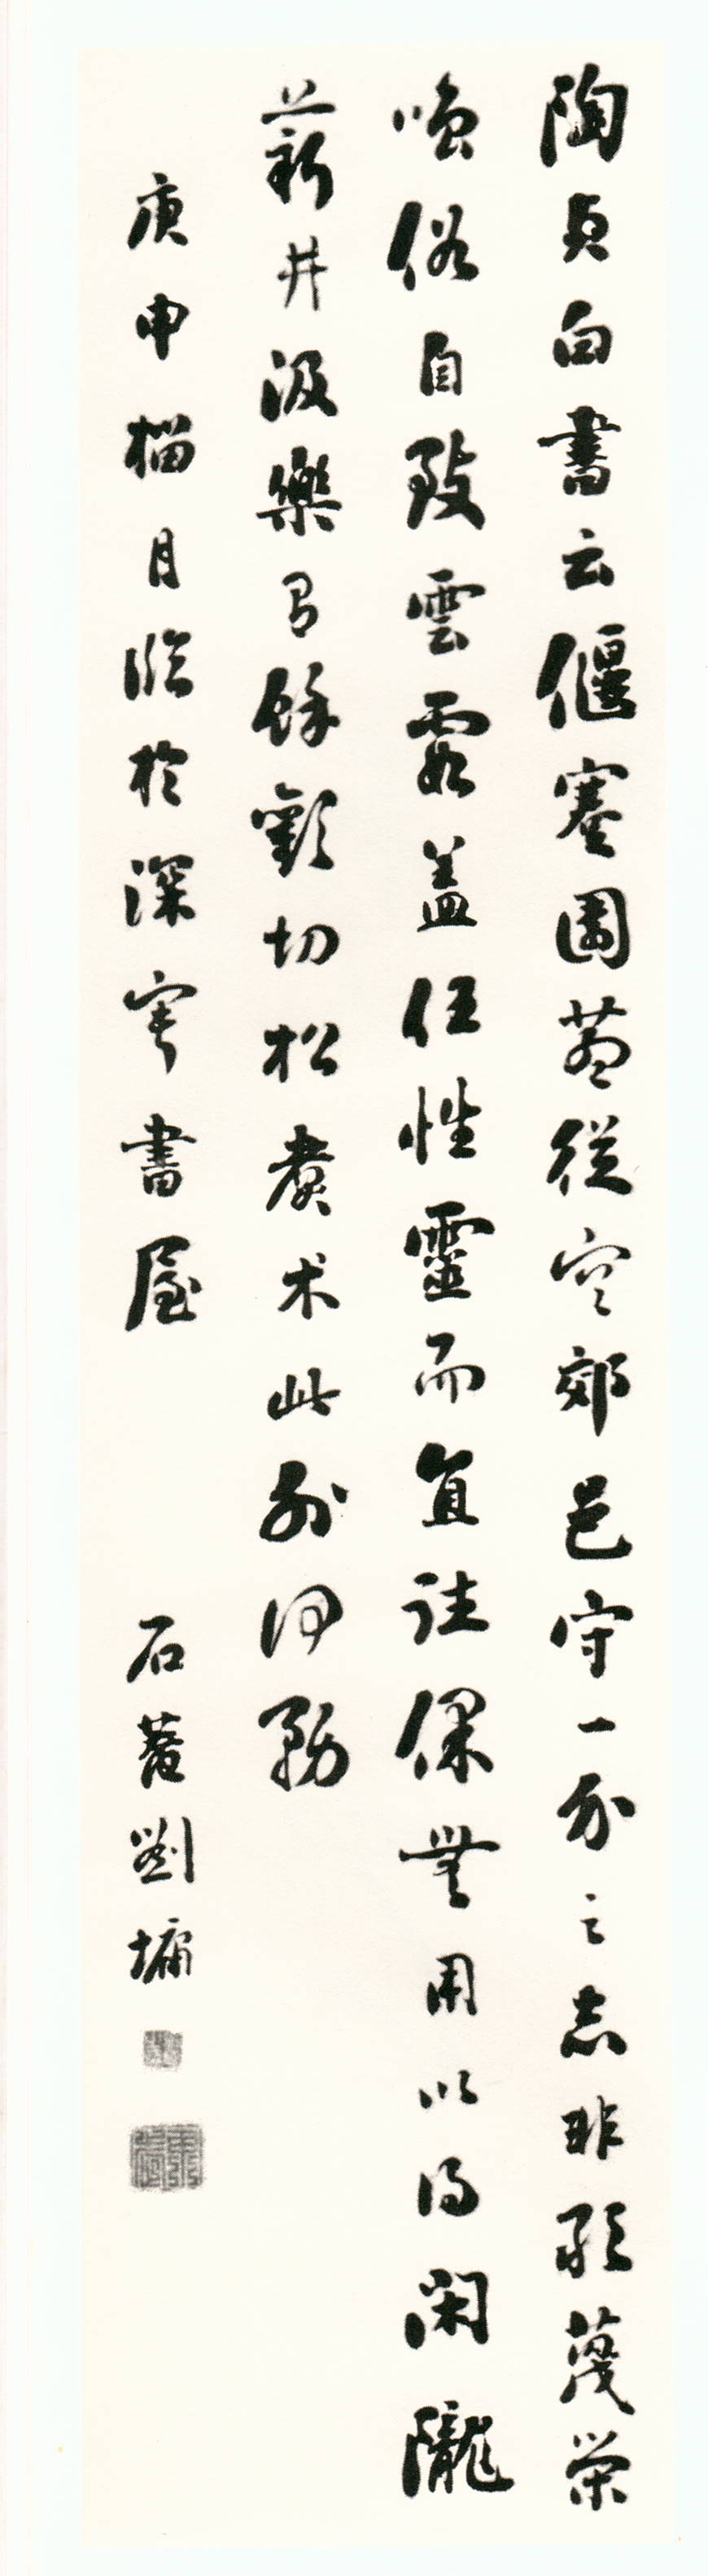 陶貞白書云偃蹇園巷從容郊邑守一分之志非敢蔑榮
嗤俗自致雲霞蓋任性靈而直往保無用以得閑隴
薪井汲樂有餘歡切松煮术此外何務
庚申榴月臨於深寧書屋
石菴劉墉